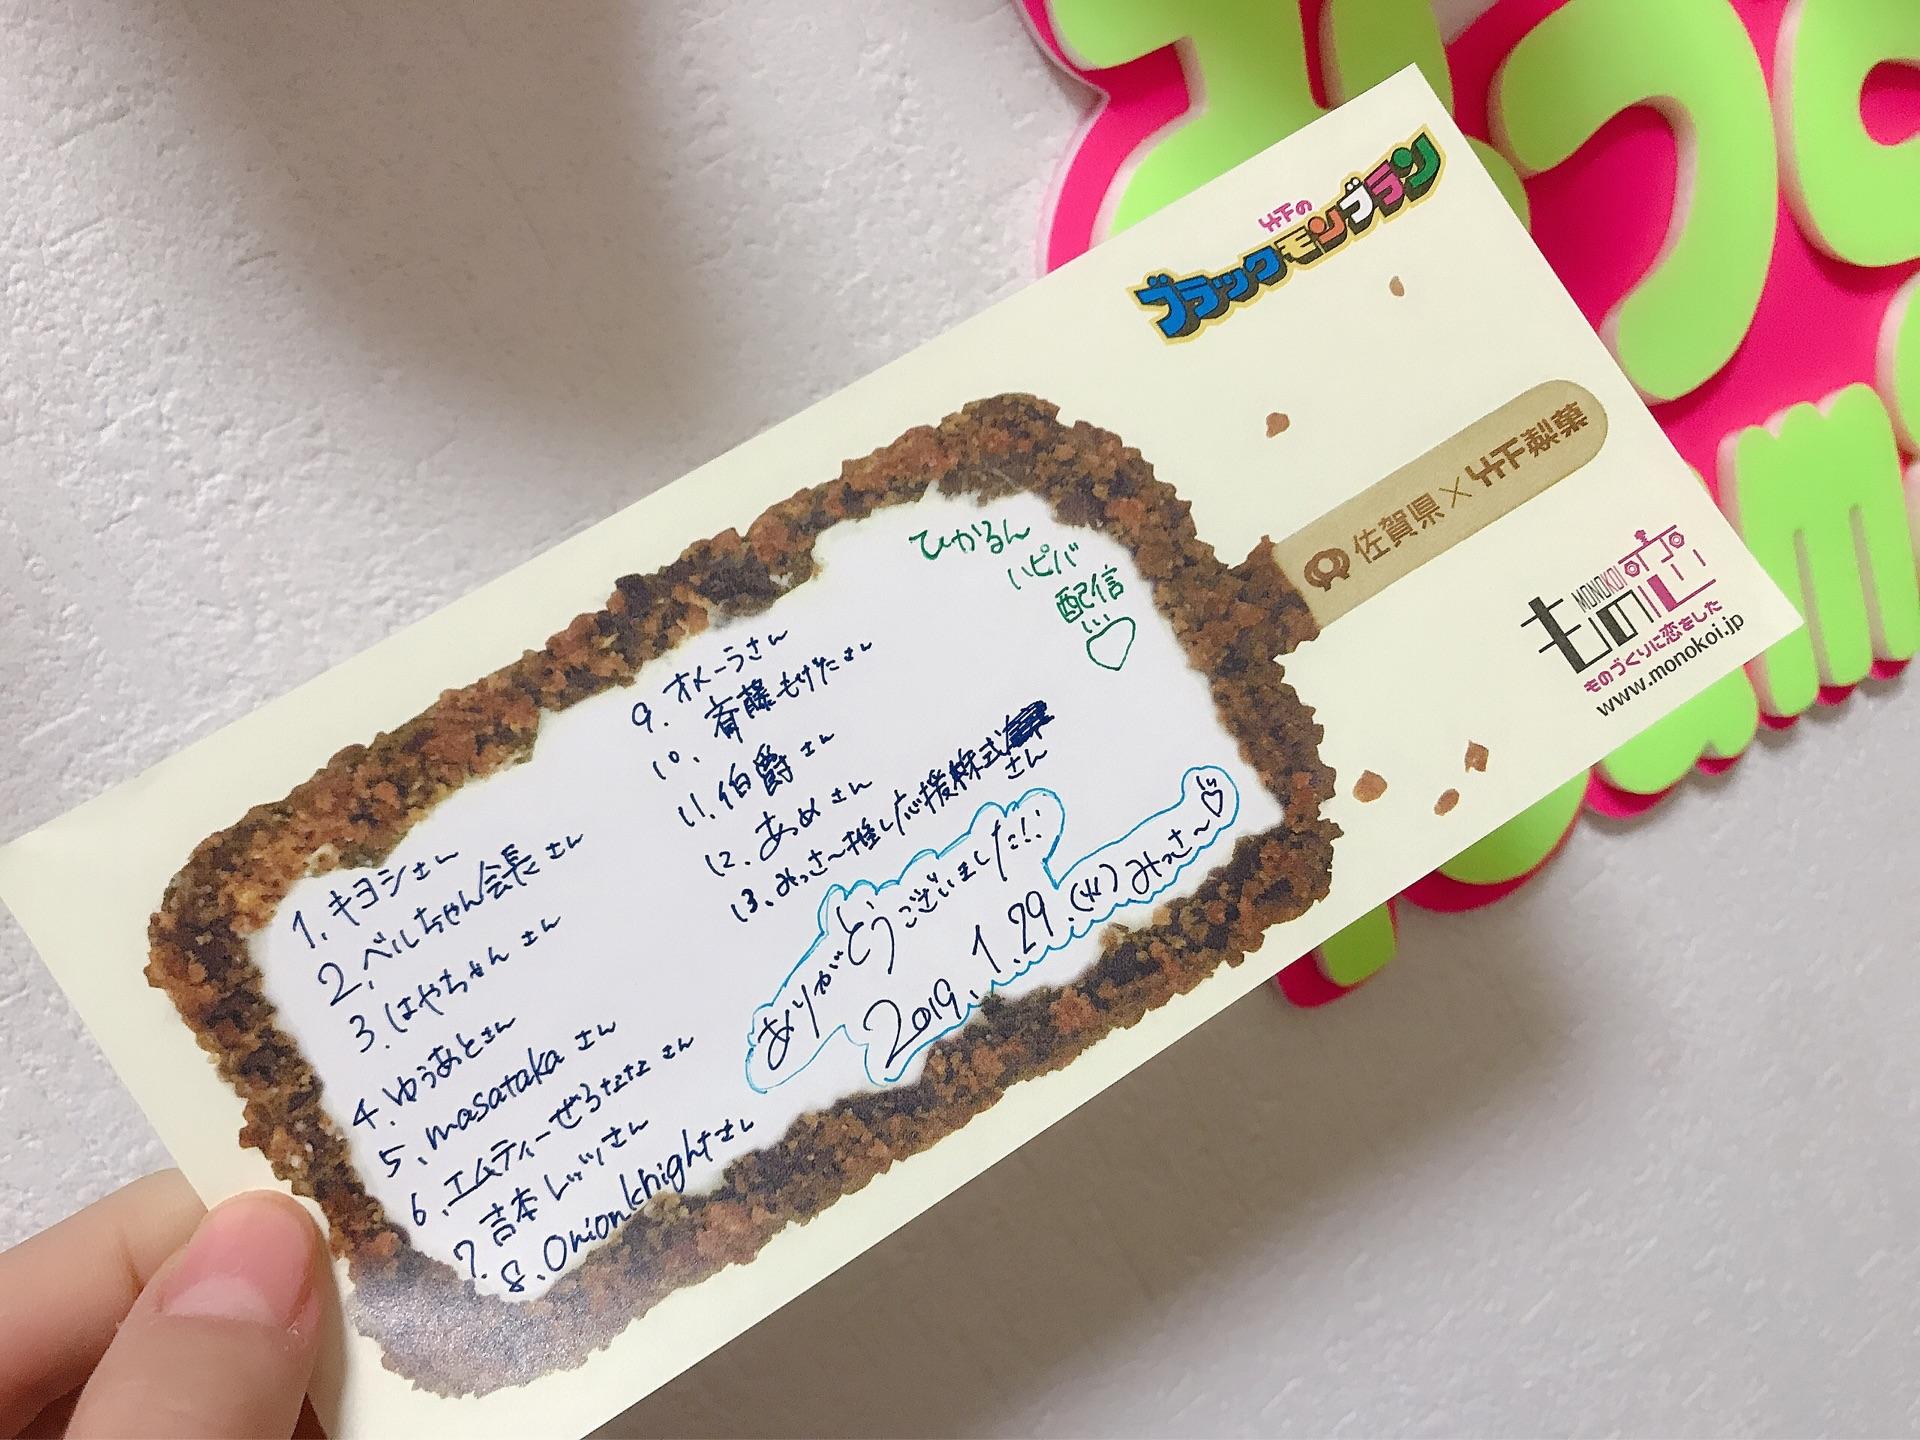 竹下の
ブラックモンブラン
佐賀県×竹下製菓
MONOKOI
ものづくりに恋をした
www.monokoi.jp
ひかるん
ハピバ
配信
1. キヨシさん
2. ベルちゃん会長さん
3. はやちゃんさん
4. ゆうあとさん
5. masatakaさん
6. エムティーぜろななさん
7. 吉本レッツさん
8. Onionknightさん
9. オメーラさん
10. 斉藤もげたさん
11. 伯爵さん
12. あめさん
13. みっさ〜推し応援株式
さん
ありがとうございました!!
2019. 1. 29. (火) みっさ〜